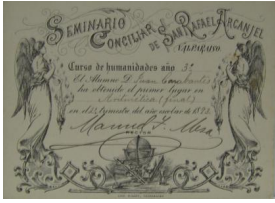 SEMINARIO
CONCILIAR DE SAN RAFAEL ARCANJEL
VALPARAISO
Curso de humanidades año 3º
El Alumno D. Juan
ha obtenido el primer lugar en
(final)
en el 2º trimestre del año escolar de 189
Manuel F. Mesa
RECTOR